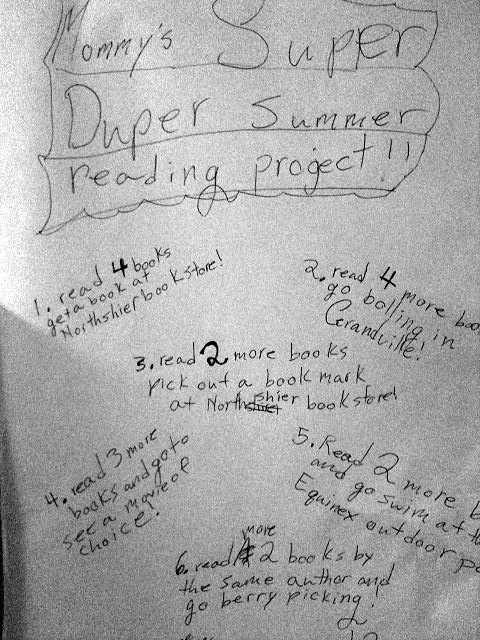 Mommy's Super
Duper Summer
reading project!!
1. read 4 books
get a book at
Northshier book store!
2. read 4 more boo
go bolling in
Grandville!
3. read 2 more books
pick out a book mark
at Northshier bookstore!
4. read 3 more
books and go to
see a movie of
choice!
5. Read 2 more b
and go swim at th
Equinex outdoor po
6. read more 2 books by
the same author and
go berry picking!